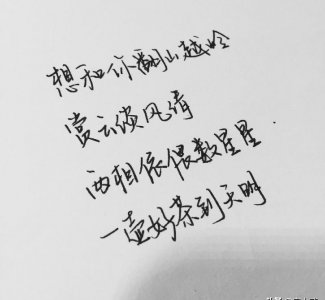 想和你翻山越岭
赏云谈风情
两相依偎数星星
一壶好茶到天明